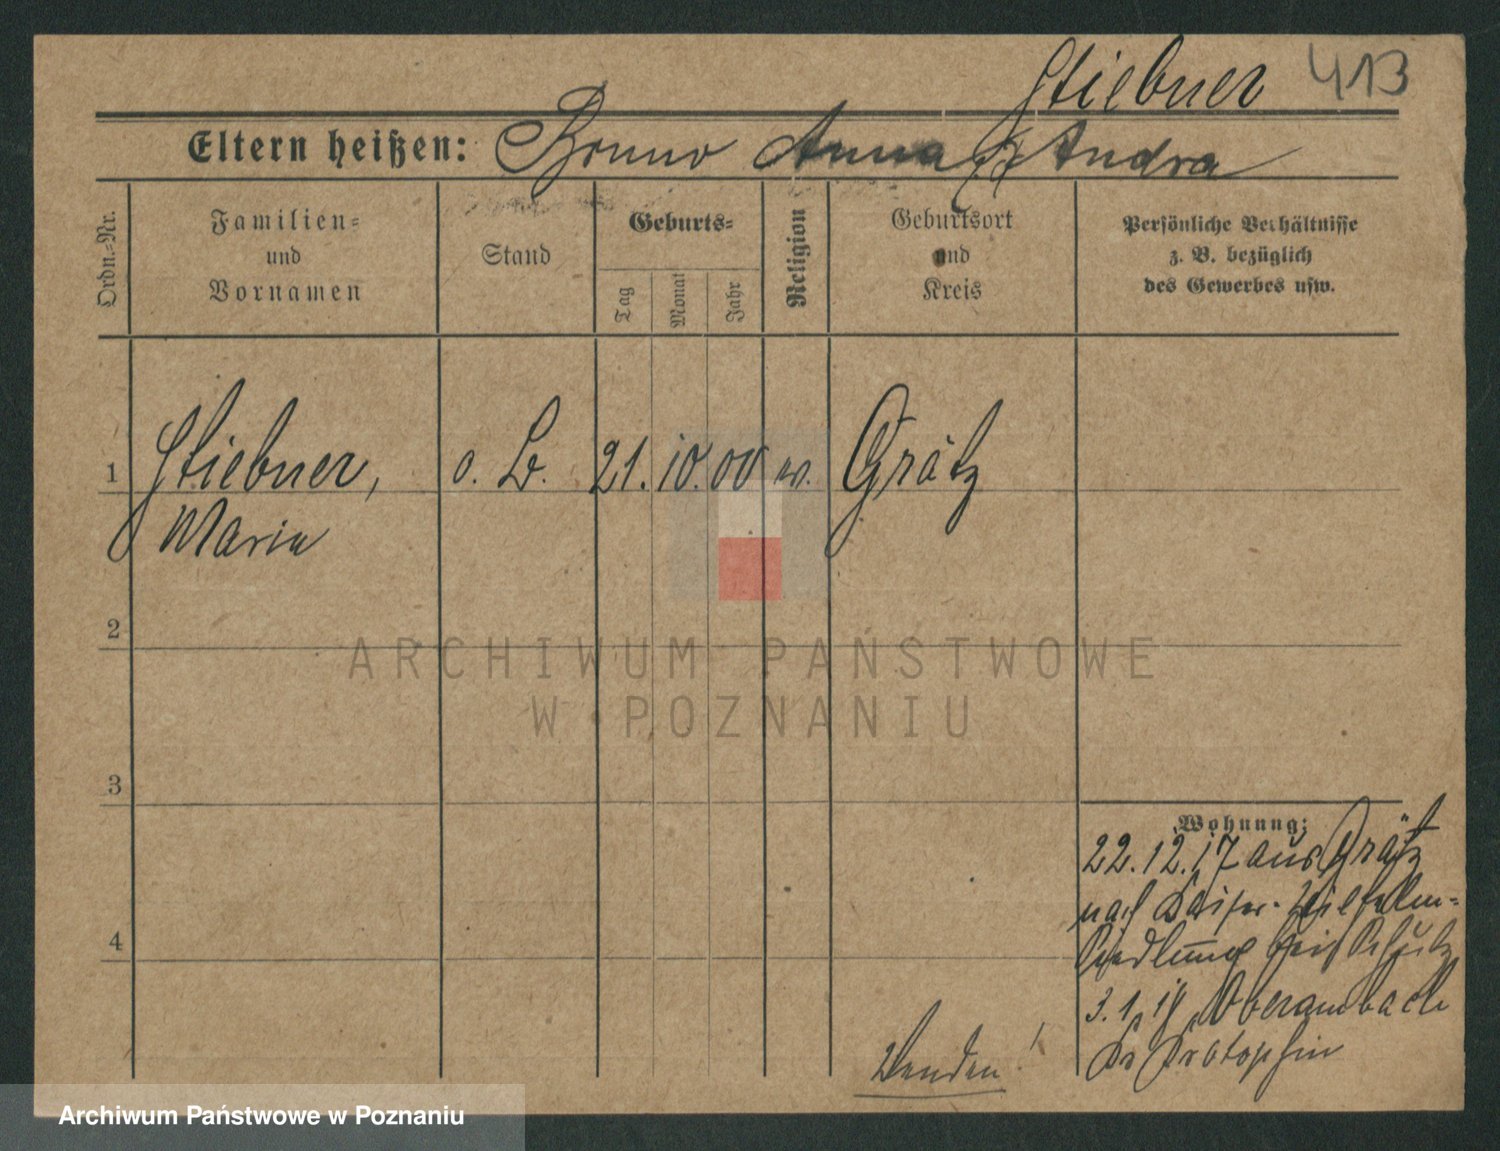 Stiebner 413
Eltern heißen: Bruno Anna Andra
Ordn.-Nr.
Familien-
und
Vornamen
Stand
Geburts-
Tag
Monat
Jahr
Religion
Geburtsort
und
Kreis
Persönliche Verhältnisse
z. B. bezüglich
des Gewerbes usw.
1 Stiebner, o. B. 21. 10. 00 ev. Grätz
Maria
2
ARCHIWUM PAŃSTWOWE
W POZNANIU
3
Wohnung:
22.12.17 aus Grätz
nach Kaiser-Wilhelm-
Siedlung bei
4
3.1.18 Oberambach
Kr Protoschin
Wenden!
Archiwum Państwowe w Poznaniu